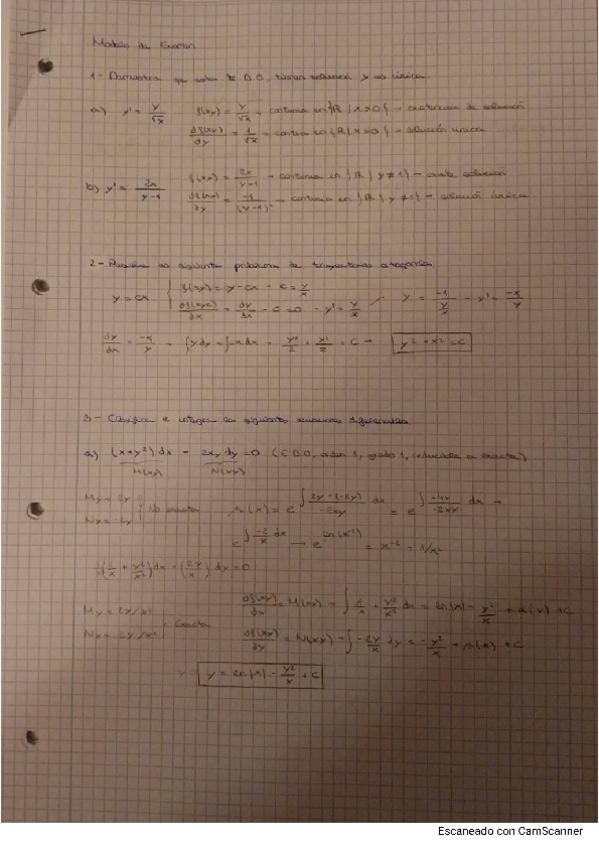 Modelo de Examen
1- Demuestra que estas E.D.O. tienen solución y es única.
a) y' = y/√x f(x,y) = y/√x → continua en {ℝ | x>0} → existencia de solución
∂f(x,y)/∂y = 1/√x → continua en {ℝ | x>0} → solución única
b) y' = 2x/(y-1) f(x,y) = 2x/(y-1) → continua en {ℝ | y≠1} → existe solución
∂f(x,y)/∂y = -1/(y-1)² → continua en {ℝ | y≠1} → solución única
2- el siguiente problema de trayectorias ortogonales
y = cx { f(x,y) = y - cx → c = y/x
dy/dx - c = 0 → y' = y/x y' = -1/(y/x) → y' = -x/y
dy/dx = -x/y → ∫y dy = ∫-x dx → y²/2 + x²/2 = C → y² + x² = C
3- Clasifica e integra las siguientes ecuaciones diferenciales
a) (x+y²)dx - 2xy dy = 0 (E.D.O, orden 1, grado 1, reducible a exacta)
M(x,y) N(x,y)
My = 2y
Nx = -2y } No exacta μ(x) = e^∫ (2y-(-2y))/(-2xy) dx = e^∫ +4y/(-2xy) dx →
e^∫ -2/x dx → e^ln(x⁻²) = x⁻² = 1/x²
(1/x + y²/x²)dx - (2y/x) dy = 0
∂f(x,y)/∂x = M(x,y) → ∫ 1/x + y²/x² dx = ln|x| - y²/x + C
My = 2y/x²
Nx = 2y/x² } Exacta
∂f(x,y)/∂y = N(x,y) → ∫ -2y/x dy = -y²/x + C
y = ln|x| - y²/x + C
Escaneado con CamScanner